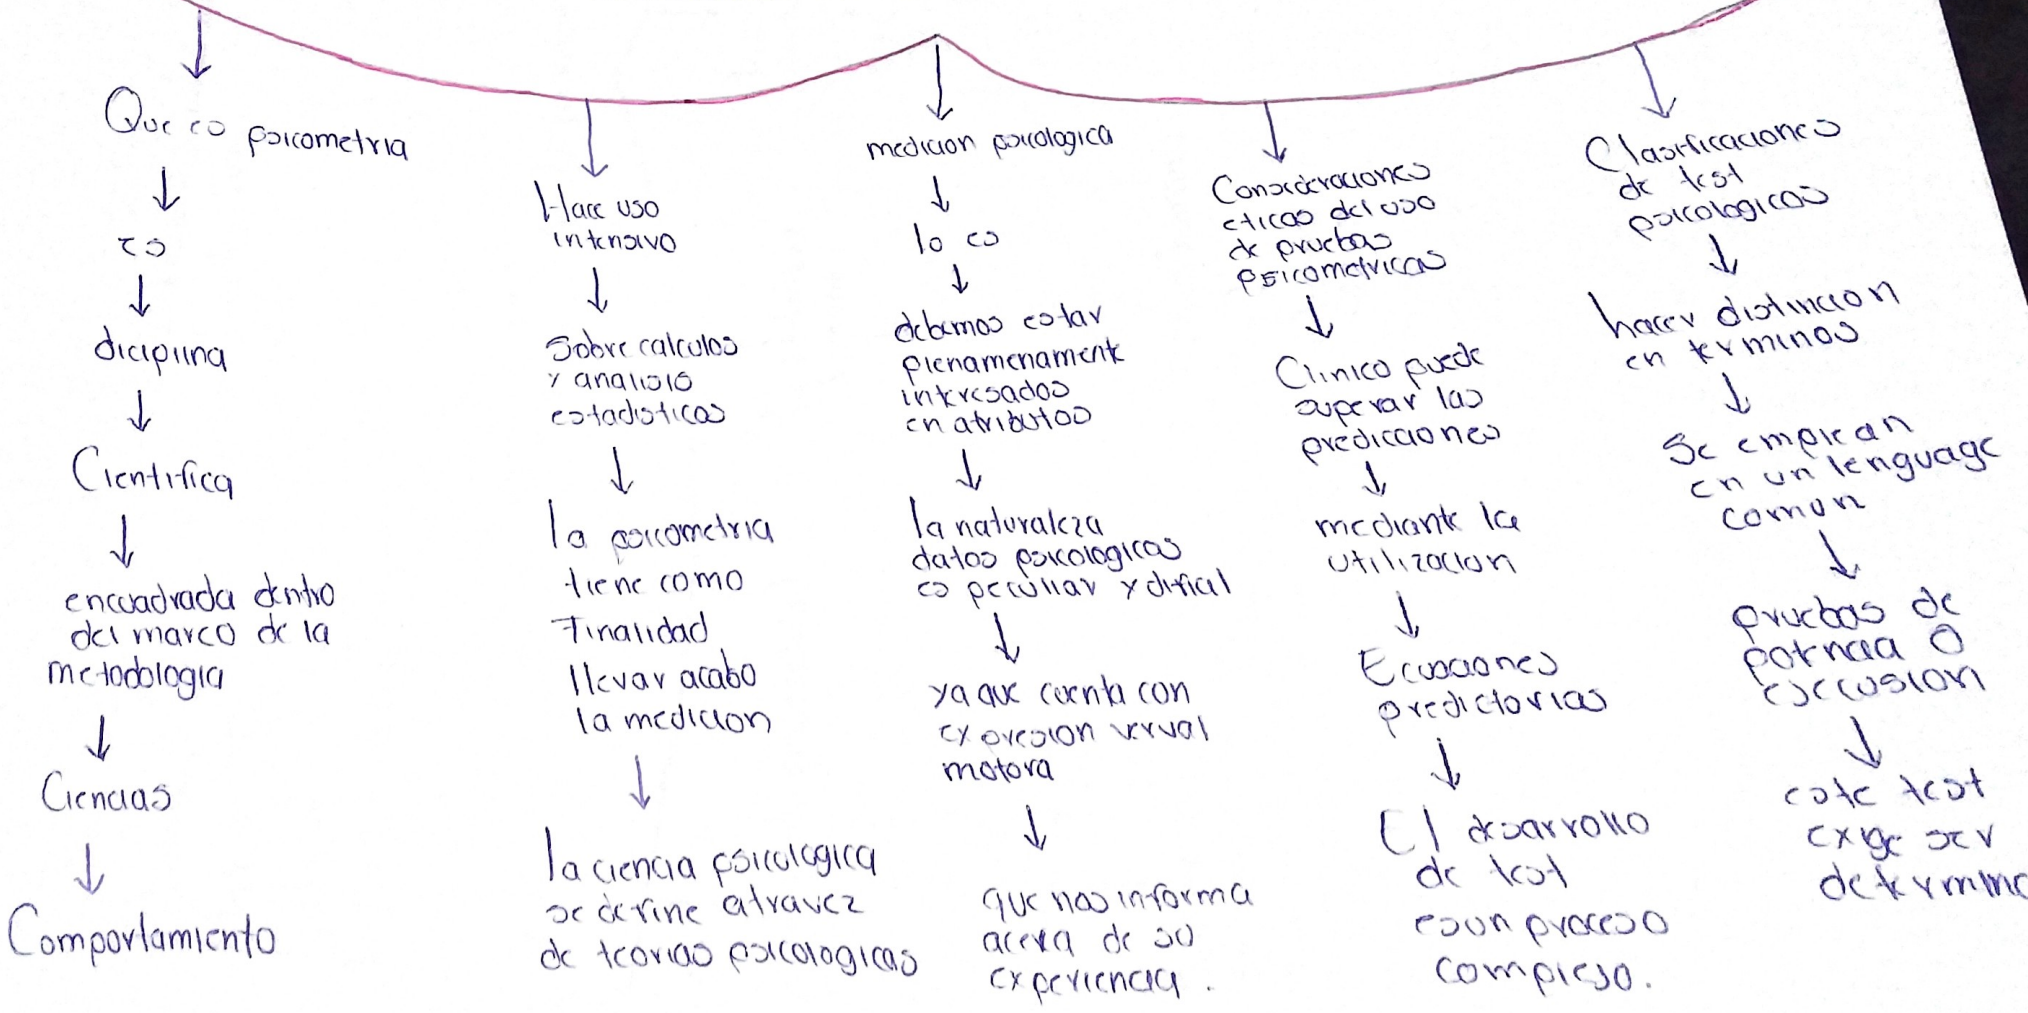 Que es psicometria
es
diciplina
Cientifica
encuadrada dentro
del marco de la
metodologia
Ciencias
Comportamiento
Hace uso
intensivo
Sobre calculos
y analisis
estadisticas
la psicometria
tiene como
Finalidad
llevar acabo
la medicion
la ciencia psicologica
se define atravez
de teorias psicologicas
medicion psicologica
lo es
debemos estar
plenamenament
interesados
en atributos
la naturaleza
datos psicologicas
es peculiar y dificil
ya que cuenta con
expresion verval
motora
que nos informa
acerca de su
experiencia.
Consideraciones
eticas del uso
de pruebas
psicometricas
Clinico puede
superar las
predicciones
mediante la
utilizacion
Ecuaciones
predictorias
El desarrollo
de test
es un proceso
complejo.
Clasificaciones
de test
psicologicos
hacer distincion
en terminos
Se emplean
en un lenguage
comun
pruebas de
O
ejecusion
este test
exige ser